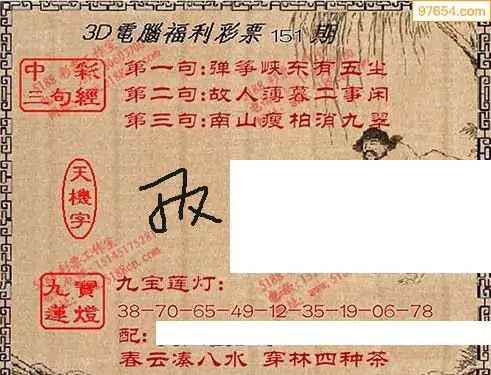 97654.com
3D電腦福利彩票 151 期
中彩
三句經
第一句:弹筝峡东有五尘
第二句:故人薄暮二事闲
第三句:南山瘦柏消九翠
天機字
九寶
蓮燈
九宝莲灯:
38-70-65-49-12-35-19-06-78
配:
春云凑八水 穿林四种茶